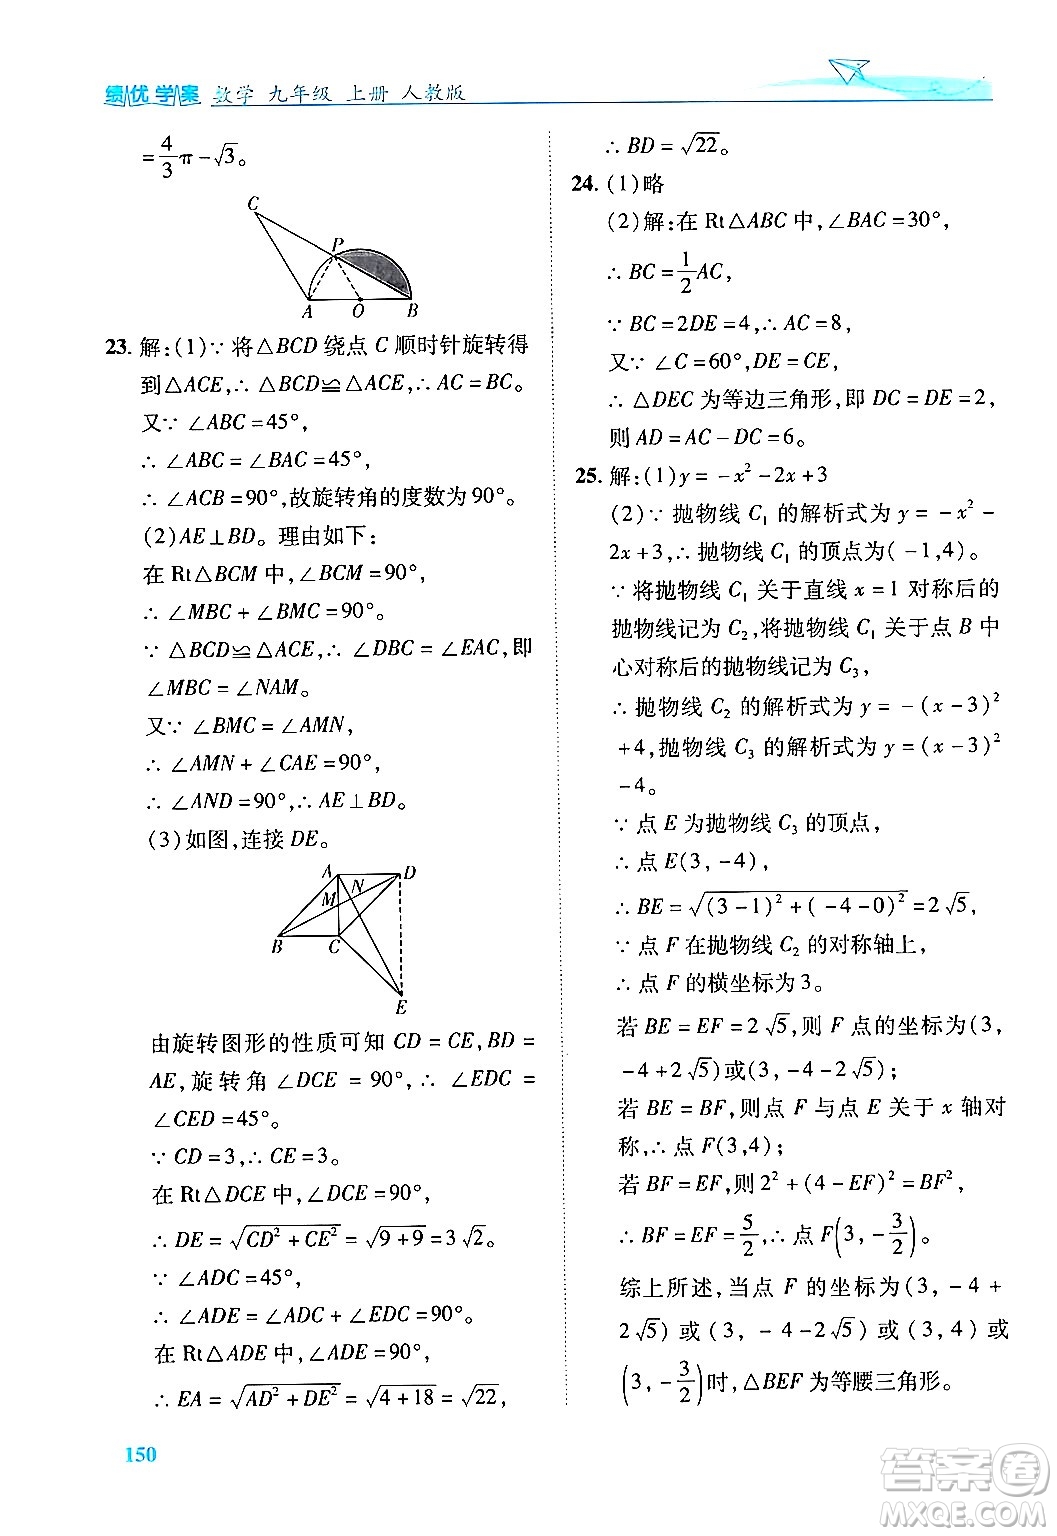 绩优学案 数学 九年级 上册 人教版
=4/3π-√3。
C
P
A O B
23. 解:(1)∵将△BCD绕点C顺时针旋转得
到△ACE,∴△BCD≌△ACE,∴AC=BC。
又∵∠ABC=45°,
∴∠ABC=∠BAC=45°,
∴∠ACB=90°,故旋转角的度数为90°。
(2)AE⊥BD。理由如下:
在Rt△BCM中,∠BCM=90°,
∴∠MBC+∠BMC=90°。
∵△BCD≌△ACE,∴∠DBC=∠EAC,即
∠MBC=∠NAM。
又∵∠BMC=∠AMN,
∴∠AMN+∠CAE=90°,
∴∠AND=90°,∴AE⊥BD。
(3)如图,连接DE。
A D
M N
B C
E
由旋转图形的性质可知CD=CE,BD=
AE,旋转角∠DCE=90°,∴∠EDC=
∠CED=45°。
∵CD=3,∴CE=3。
在Rt△DCE中,∠DCE=90°,
∴DE=√(CD²+CE²)=√(9+9)=3√2。
∵∠ADC=45°,
∴∠ADE=∠ADC+∠EDC=90°。
在Rt△ADE中,∠ADE=90°,
∴EA=√(AD²+DE²)=√(4+18)=√22,
150
∴BD=√22。
24. (1)略
(2)解:在Rt△ABC中,∠BAC=30°,
∴BC=1/2AC,
∵BC=2DE=4,∴AC=8,
又∵∠C=60°,DE=CE,
∴△DEC为等边三角形,即DC=DE=2,
则AD=AC-DC=6。
25. 解:(1)y=-x²-2x+3
(2)∵抛物线C₁的解析式为y=-x²-
2x+3,∴抛物线C₁的顶点为(-1,4)。
∵将抛物线C₁关于直线x=1对称后的
抛物线记为C₂,将抛物线C₁关于点B中
心对称后的抛物线记为C₃,
∴抛物线C₂的解析式为y=-(x-3)²
+4,抛物线C₃的解析式为y=(x-3)²
-4。
∵点E为抛物线C₃的顶点,
∴点E(3,-4),
∴BE=√((3-1)²+(-4-0)²)=2√5,
∵点F在抛物线C₂的对称轴上,
∴点F的横坐标为3。
若BE=EF=2√5,则F点的坐标为(3,
-4+2√5)或(3,-4-2√5);
若BE=BF,则点F与点E关于x轴对
称,∴点F(3,4);
若BF=EF,则2²+(4-EF)²=BF²,
∴BF=EF=5/2,∴点F(3,-3/2)。
综上所述,当点F的坐标为(3,-4+
2√5)或(3,-4-2√5)或(3,4)或
(3,-3/2)时,△BEF为等腰三角形。
答案圈
MXQE.COM